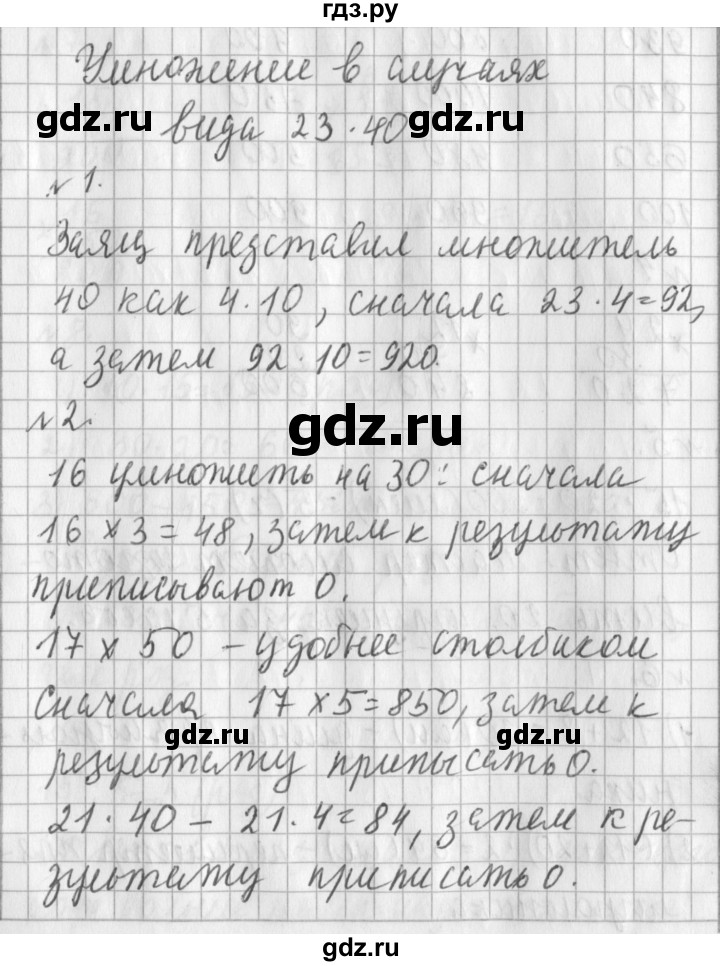 гдз.ру
Умножение в случаях
gdz.ru
вида 23 · 40
gdz.ru
№ 1.
Заяц представил множитель
40 как 4 · 10, сначала 23 · 4 = 92,
а затем 92 · 10 = 920.
gdz.ru
№ 2.
16 умножить на 30: сначала
16 × 3 = 48, затем к результату
приписывают 0.
17 × 50 – удобнее столбиком
Сначала 17 × 5 = 850, затем к
gdz.ru
gdz.ru
результату приписать 0.
21 · 40 – 21 · 4 = 84, затем к ре-
зультату приписать 0.
gdz.ru